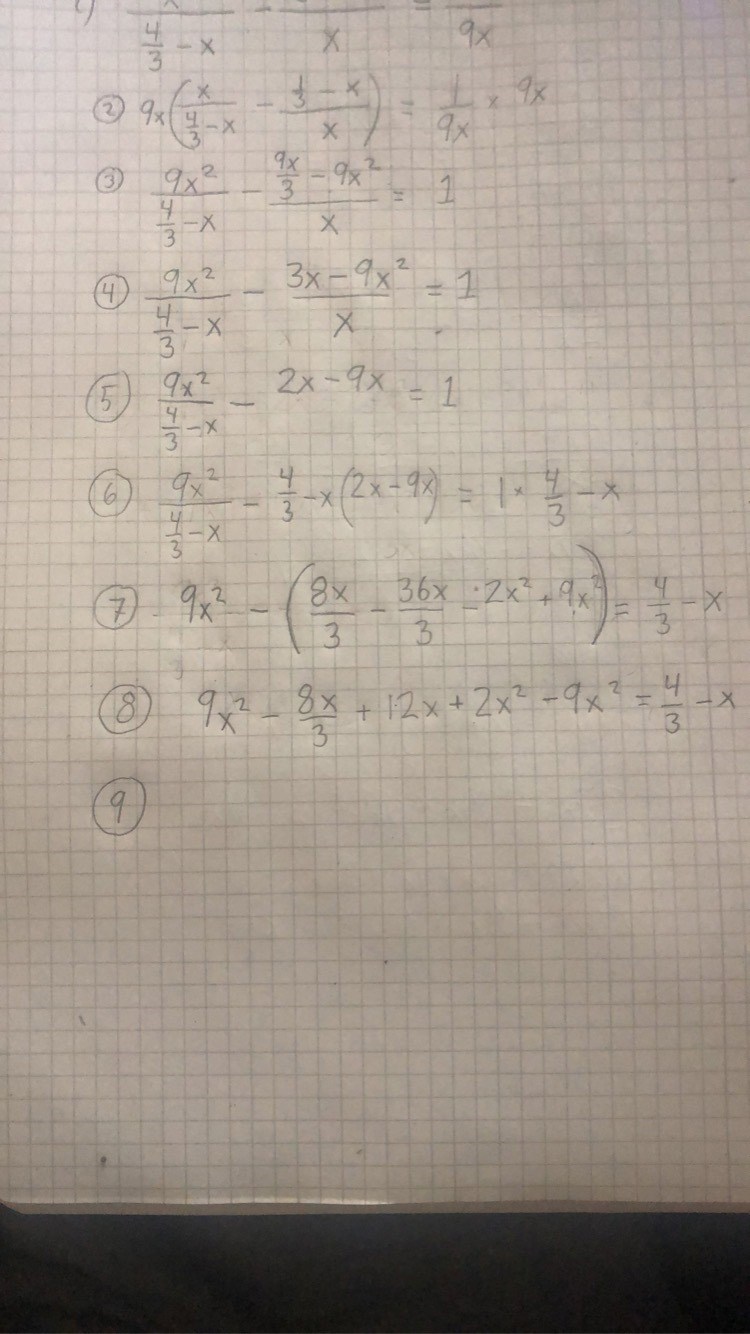 1) x/(4/3 - x) - /x = /9x
② 9x(x/(4/3 - x) - (1/3 - x)/x) = 1/9x × 9x
③ 9x²/(4/3 - x) - (9x/3 - 9x²)/x = 1
④ 9x²/(4/3 - x) - (3x - 9x²)/x = 1
⑤ 9x²/(4/3 - x) - 2x - 9x = 1
⑥ 9x²/(4/3 - x) - 4/3 - x(2x - 9x) = 1 × 4/3 - x
⑦ 9x² - (8x/3 - 36x/3 - 2x² + 9x²) = 4/3 - x
⑧ 9x² - 8x/3 + 12x + 2x² - 9x² = 4/3 - x
⑨